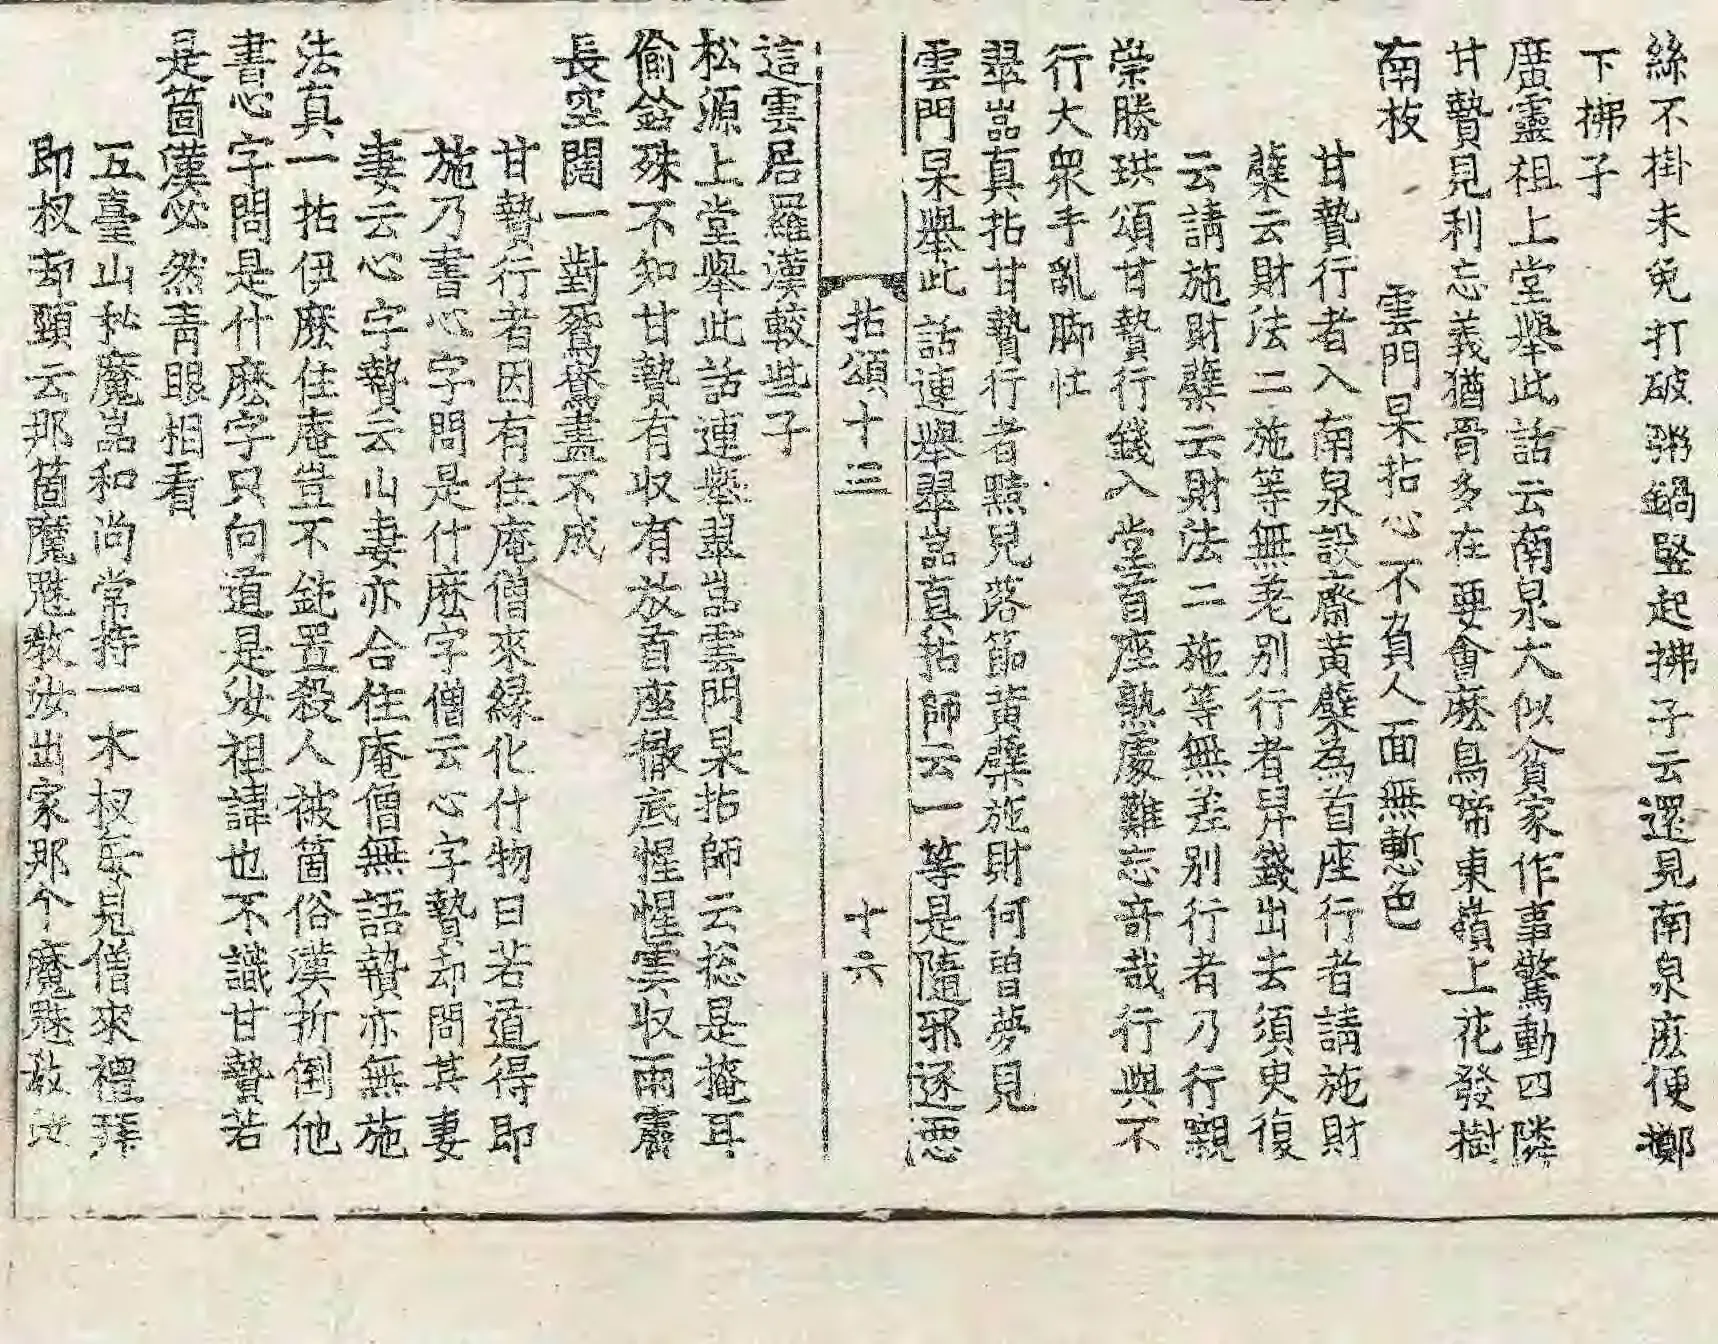 絲不掛未免打破粥鍋竪起拂子云還見南泉麽便擲
下拂子
廣靈祖上堂舉此話云南泉大似貧家作事驚動四隣
甘贄見利忘義猶骨多在要會麽鳥啼東嶺上花發樹
南枝　　雲門杲拈心不負人面無慙色
甘贄行者入南泉設齋黃蘗為首座行者請施財
蘗云財法二施等無差別行者舁錢出去須臾復
云請施財蘗云財法二施等無差別行者乃行襯
崇勝珙頌甘贄行錢入堂首座熟處難忘奇哉行與不
行大衆手亂脚忙
翠嵓真拈甘贄行者黠兒落節黃蘗施財何曾夢見
雲門杲舉此話連舉翠嵓真拈師云一等是隨邪逐惡
拈頌十三　十六
這雲居羅漢較些子
松源上堂舉此話連舉翠嵓雲門杲拈師云捴是掩耳
偷鈴殊不知甘贄有収有放首座徹底惺惺雲収雨霽
長空闊一對鴛鴦畵不成
甘贄行者因有住庵僧來緣化什物曰若道得即
施乃書心字問是什麽字僧云心字贄却問其妻
妻云心字贄云山妻亦合住庵僧無語贄亦無施
法真一拈伊麽住庵豈不鈍置殺人被箇俗漢折倒他
書心字問是什麽字只向道是汝祖諱也不識甘贄若
是箇漢必然青眼相看
五臺山祕魔嵓和尚常持一木杈每見僧來禮拜
即杈却頸云那箇魔魅敎汝出家那个魔魅敎汝